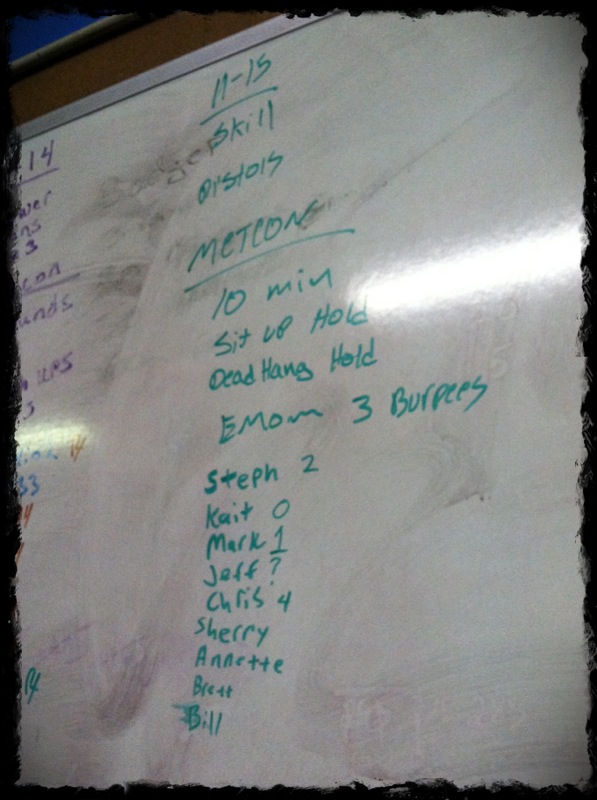 11-15
Skill
Pistols
METCON
10 min
Sit up Hold
Dead Hang Hold
EMOM 3 Burpees
Steph 2
Kait 0
Mark 1
Jeff ?
Chris 4
Sherry
Annette
Brett
Bill
.14
wer
ns
3
con
unds
UPS
s
14
33